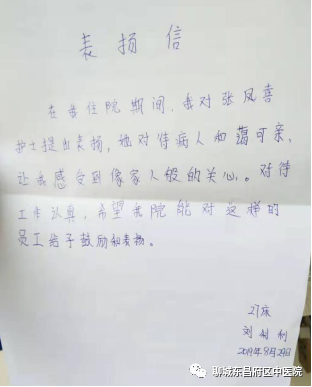 表扬信
在我住院期间，我对张凤喜
护士提出表扬，她对待病人和蔼可亲，
让我感受到像家人般的关心。对待
工作认真，希望贵院能对这样的
员工给予鼓励和表扬。
27床
刘树利
2019年8月29日
聊城东昌府区中医院